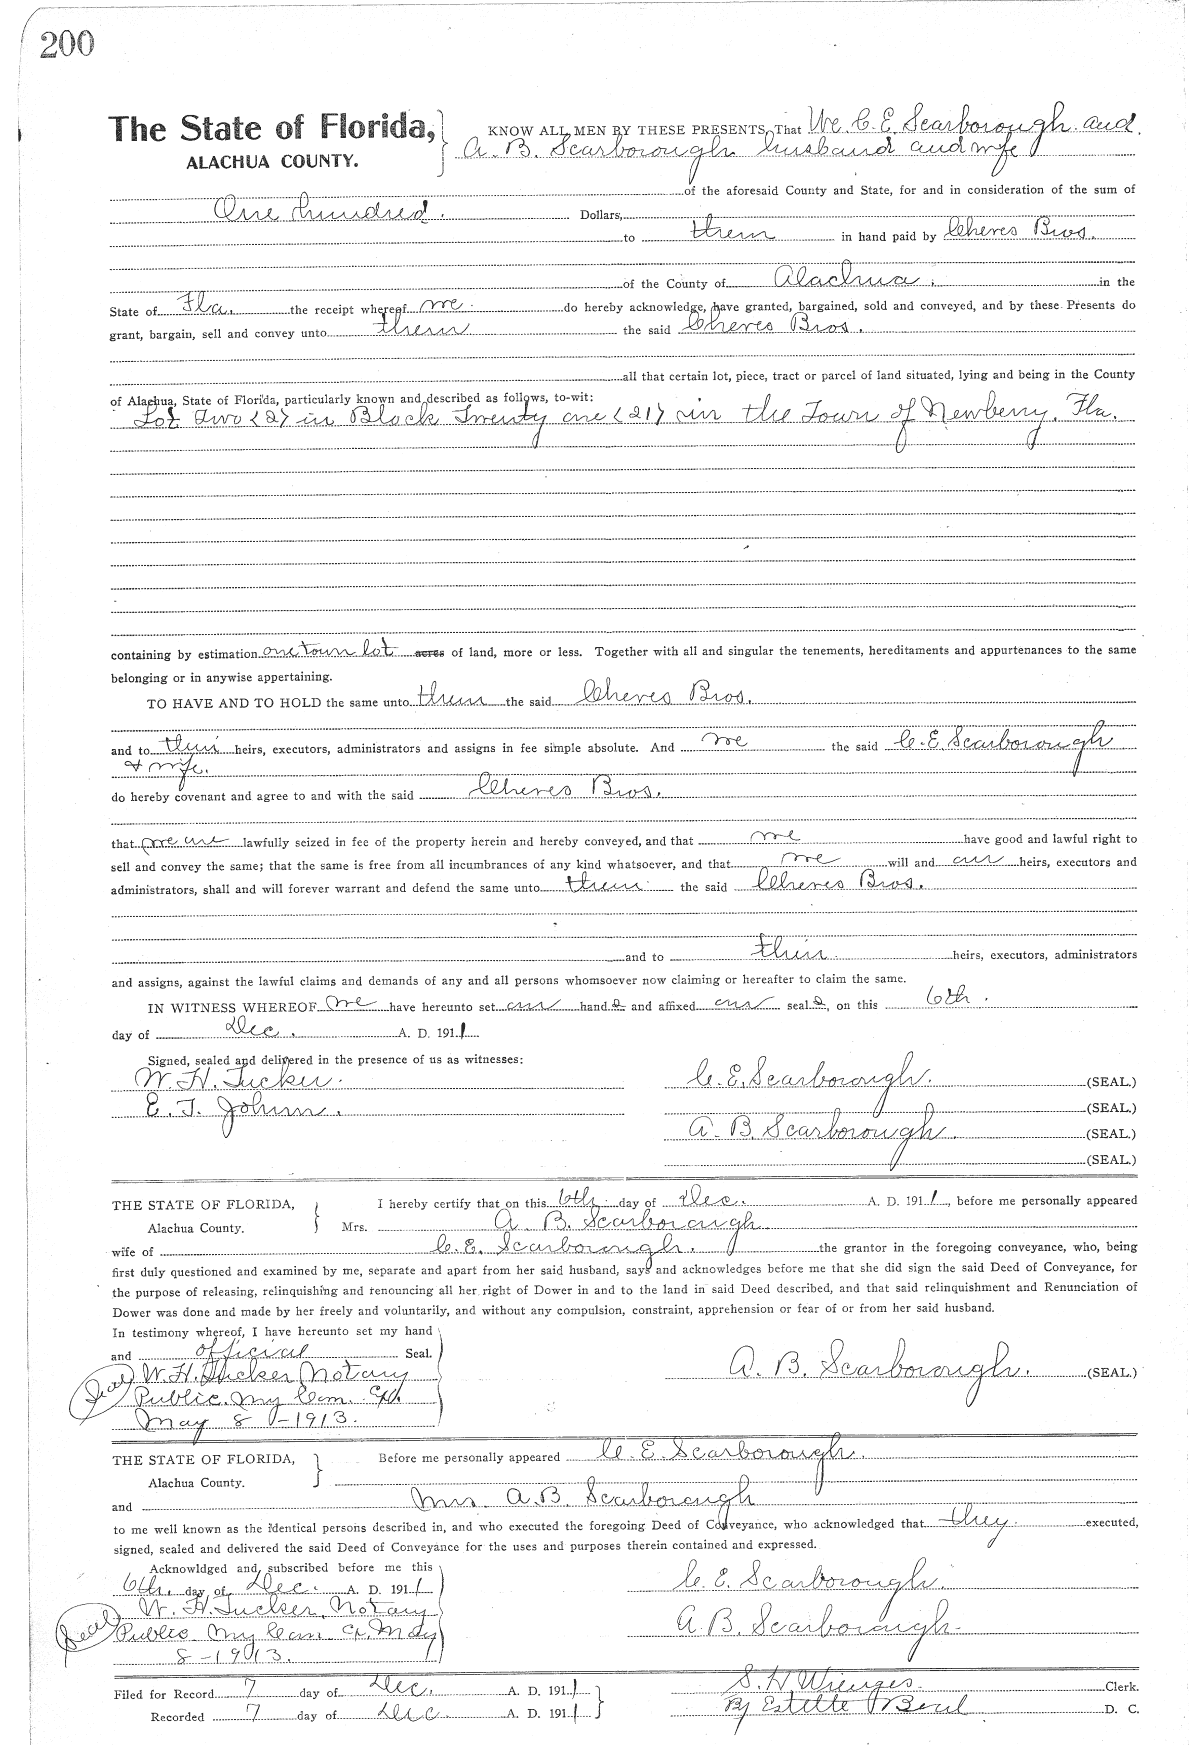 200
The State of Florida, KNOW ALL MEN BY THESE PRESENTS, That We C. E. Scarborough and
ALACHUA COUNTY. A. B. Scarborough husband and wife
of the aforesaid County and State, for and in consideration of the sum of
One hundred. Dollars,
to them in hand paid by Cheves Bros.
of the County of Alachua. in the
State of Fla. the receipt whereof we do hereby acknowledge, have granted, bargained, sold and conveyed, and by these Presents do
grant, bargain, sell and convey unto them the said Cheves Bros.
all that certain lot, piece, tract or parcel of land situated, lying and being in the County
of Alachua, State of Florida, particularly known and described as follows, to-wit:
Lot Two (2) in Block Twenty one (21) in the Town of Newberry, Fla.
containing by estimation one town lot acres of land, more or less. Together with all and singular the tenements, hereditaments and appurtenances to the same
belonging or in anywise appertaining.
TO HAVE AND TO HOLD the same unto them the said Cheves Bros.
and to their heirs, executors, administrators and assigns in fee simple absolute. And we the said C. E. Scarborough
& wife.
do hereby covenant and agree to and with the said Cheves Bros.
that we are lawfully seized in fee of the property herein and hereby conveyed, and that we have good and lawful right to
sell and convey the same; that the same is free from all incumbrances of any kind whatsoever, and that we will and our heirs, executors and
administrators, shall and will forever warrant and defend the same unto them the said Cheves Bros.
and to their heirs, executors, administrators
and assigns, against the lawful claims and demands of any and all persons whomsoever now claiming or hereafter to claim the same.
IN WITNESS WHEREOF we have hereunto set our hands and affixed our seals, on this 6th.
day of Dec. A. D. 1911
Signed, sealed and delivered in the presence of us as witnesses:
W. H. Tucker. C. E. Scarborough. (SEAL.)
E. T. (SEAL.)
A. B. Scarborough. (SEAL.)
(SEAL.)
THE STATE OF FLORIDA, I hereby certify that on this 6th day of Dec. A. D. 1911, before me personally appeared
Alachua County. Mrs. A. B. Scarborough
wife of C. E. Scarborough. the grantor in the foregoing conveyance, who, being
first duly questioned and examined by me, separate and apart from her said husband, says and acknowledges before me that she did sign the said Deed of Conveyance, for
the purpose of releasing, relinquishing and renouncing all her right of Dower in and to the land in said Deed described, and that said relinquishment and Renunciation of
Dower was done and made by her freely and voluntarily, and without any compulsion, constraint, apprehension or fear of or from her said husband.
In testimony whereof, I have hereunto set my hand
and official Seal.
(Seal) W. H. Tucker Notary A. B. Scarborough. (SEAL.)
Public. My Com. Ex.
May 8 - 1913.
THE STATE OF FLORIDA, Before me personally appeared C. E. Scarborough.
Alachua County.
and Mrs A. B. Scarborough
to me well known as the identical persons described in, and who executed the foregoing Deed of Conveyance, who acknowledged that they executed,
signed, sealed and delivered the said Deed of Conveyance for the uses and purposes therein contained and expressed.
Acknowldged and subscribed before me this
6th. day of Dec. A. D. 1911 C. E. Scarborough.
W. H. Tucker, Notary
(Seal) Public My Com. Ex. May A. B. Scarborough.
8 - 1913.
Filed for Record 7 day of Dec. A. D. 1911 S. H Wienges. Clerk.
Recorded 7 day of Dec A. D. 1911 By Estelle D. C.